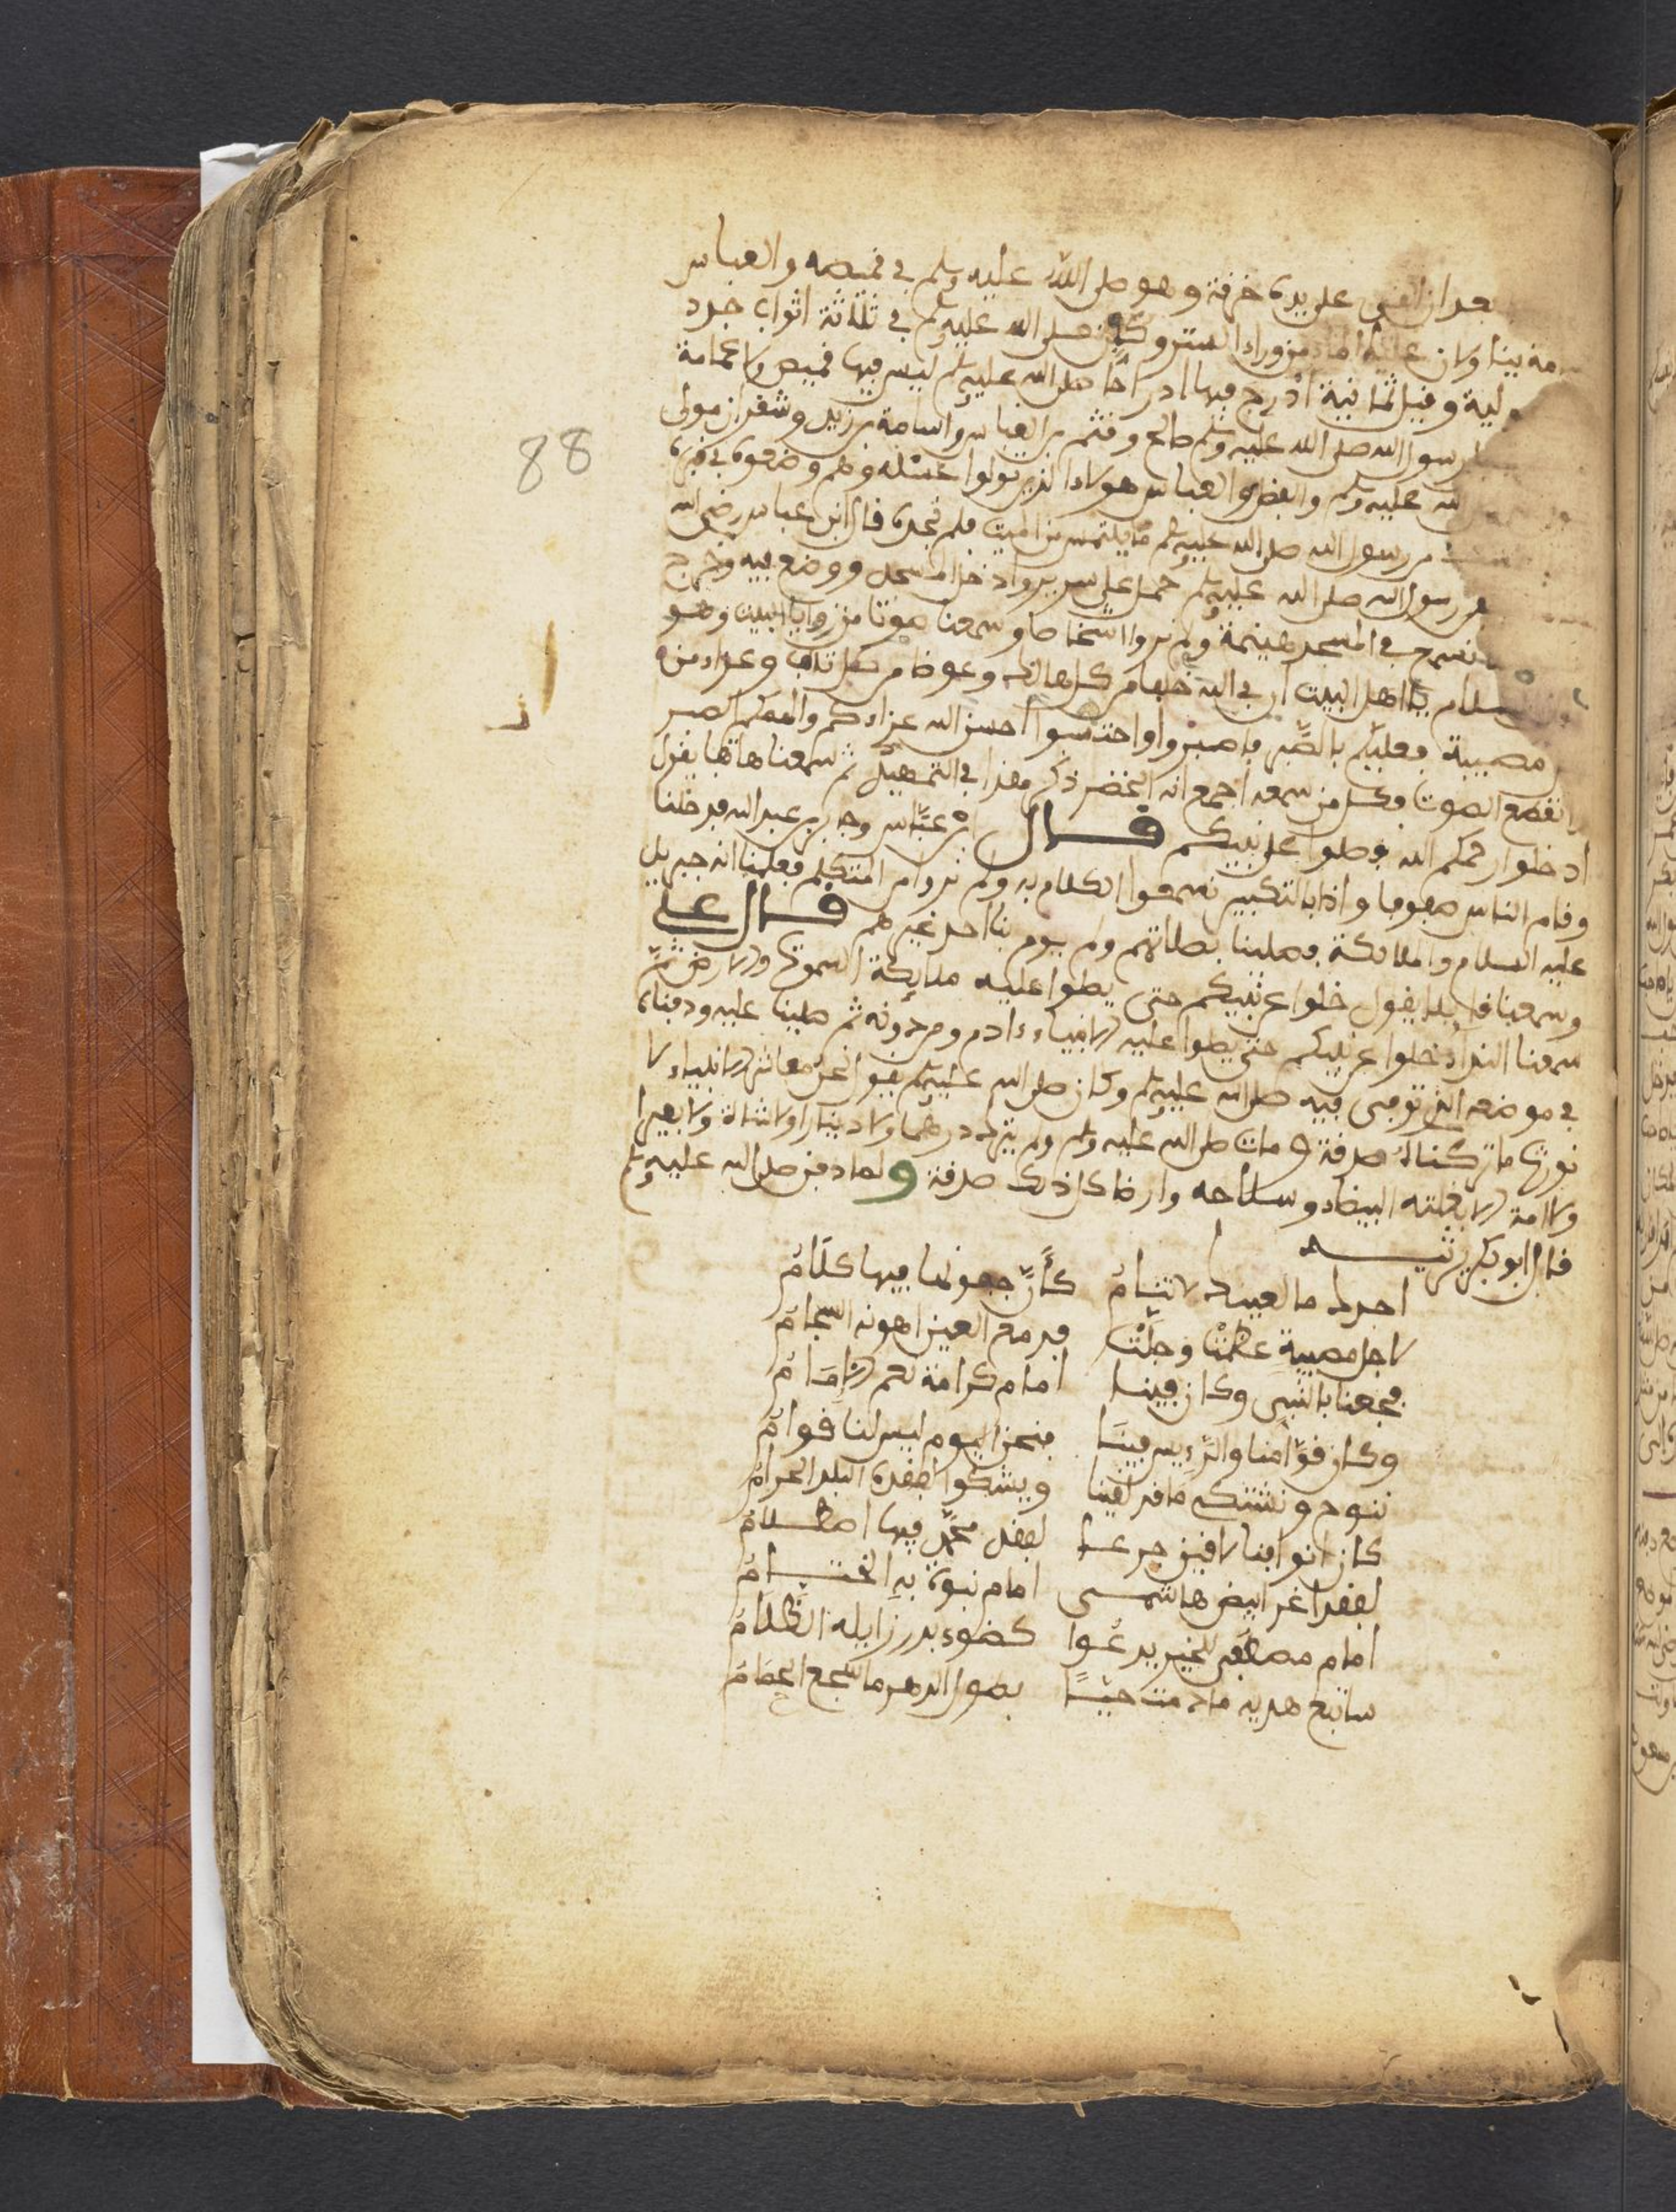 بعد ان القى على يده خرقة وهو صلى الله عليه وسلم في قميصه والعباس
مة بينا وكان علية الماء من وراء الستر وكفن صلى الله عليه وسلم في ثلاثة اثواب جدد
ولية وقيل يمانية ادرج فيها ادراجا صلى الله عليه وسلم ليس فيها قميص ولا عمامة
رسول الله صلى الله عليه وسلم صالح وقثم بن العباس واسامة بن زيد وشقران مولى
الله عليه وسلم والفضل بن العباس هولاء الذين تولوا غسله وهم وضعوه في قبره
من رسول الله صلى الله عليه وسلم ما يلتمس من الميت فلم نجده قال ابن عباس رضي الله
رسول الله صلى الله عليه وسلم حمل على سرير وادخل المسجد ووضع فيه وخرج
نسمع في المسجد هينمة ولم نروا اشخاصا وسمعنا صوتا من زوايا البيت وهو
السلام يا اهل البيت ان في الله خلفا من كل هالك وعوضا من كل تلف وعزاء من
مصيبة فعليكم بالصبر فاصبروا واحتسبوا احسن الله عزاءكم والهمكم الصبر
انقطع الصوت وكل من سمعه اجمع انه الخضر ذكر هذا في التمهيد ثم سمعنا هاتفا يقول
ادخلوا رحمكم الله فصلوا على نبيكم قال ابن عباس وجابر بن عبد الله فدخلنا
وقام الناس صفوفا واذا بالتكبير نسمعوا الكلام به ولم نروا من المتكلم فعلمنا انه جبريل
عليه السلام والملائكة فصلينا بصلاتهم ولم يوم بنا احد غيرهم قال علي
وسمعنا قائلا يقول خلوا عن نبيكم حتى يصلوا عليه ملائكة السموات والارض ثم
سمعنا النداء خلوا عن نبيكم حتى يصلوا عليه الانبياء ءادم ومن دونه ثم صلينا عليه ودفناه
في موضعه الذي توفى فيه صلى الله عليه وسلم وكان صلى الله عليه وسلم يقول نحن معاشر الانبياء لا
نورث ما تركناه صدقة ومات صلى الله عليه وسلم ولم يترك درهما ولا دينارا ولا شاة ولا بعيرا
ولا امة الا بغلته البيضاء وسلاحه وارضا كل ذلك صدقة ولما دفن صلى الله عليه وسلم
قال ابو بكر يرثيه
اجدك ما لعينك لا تنام كأن جفونها فيها كلام
لاجل مصيبة عظمت وجلت فدمع العين اهونه السجام
فجعنا بالنبي وكان فينا امام كرامة نعم الامام
وكان قوامنا والرءيس فينا فنحن اليوم ليس لنا قوام
ننوح ونشتكي ما قد لقينا ويشكوا فقده البلد الحرام
كان انوافنا لاقين جدعا لفقد محمد فيها اصطلام
لفقد اغر ابيض هاشمي امام نبوة به الختام
امام مصطفى للخير يدعوا كضوء بدر زايله الظلام
ساتبع هديه ما دمت حيا بطول الدهر ما سجع الحمام
88